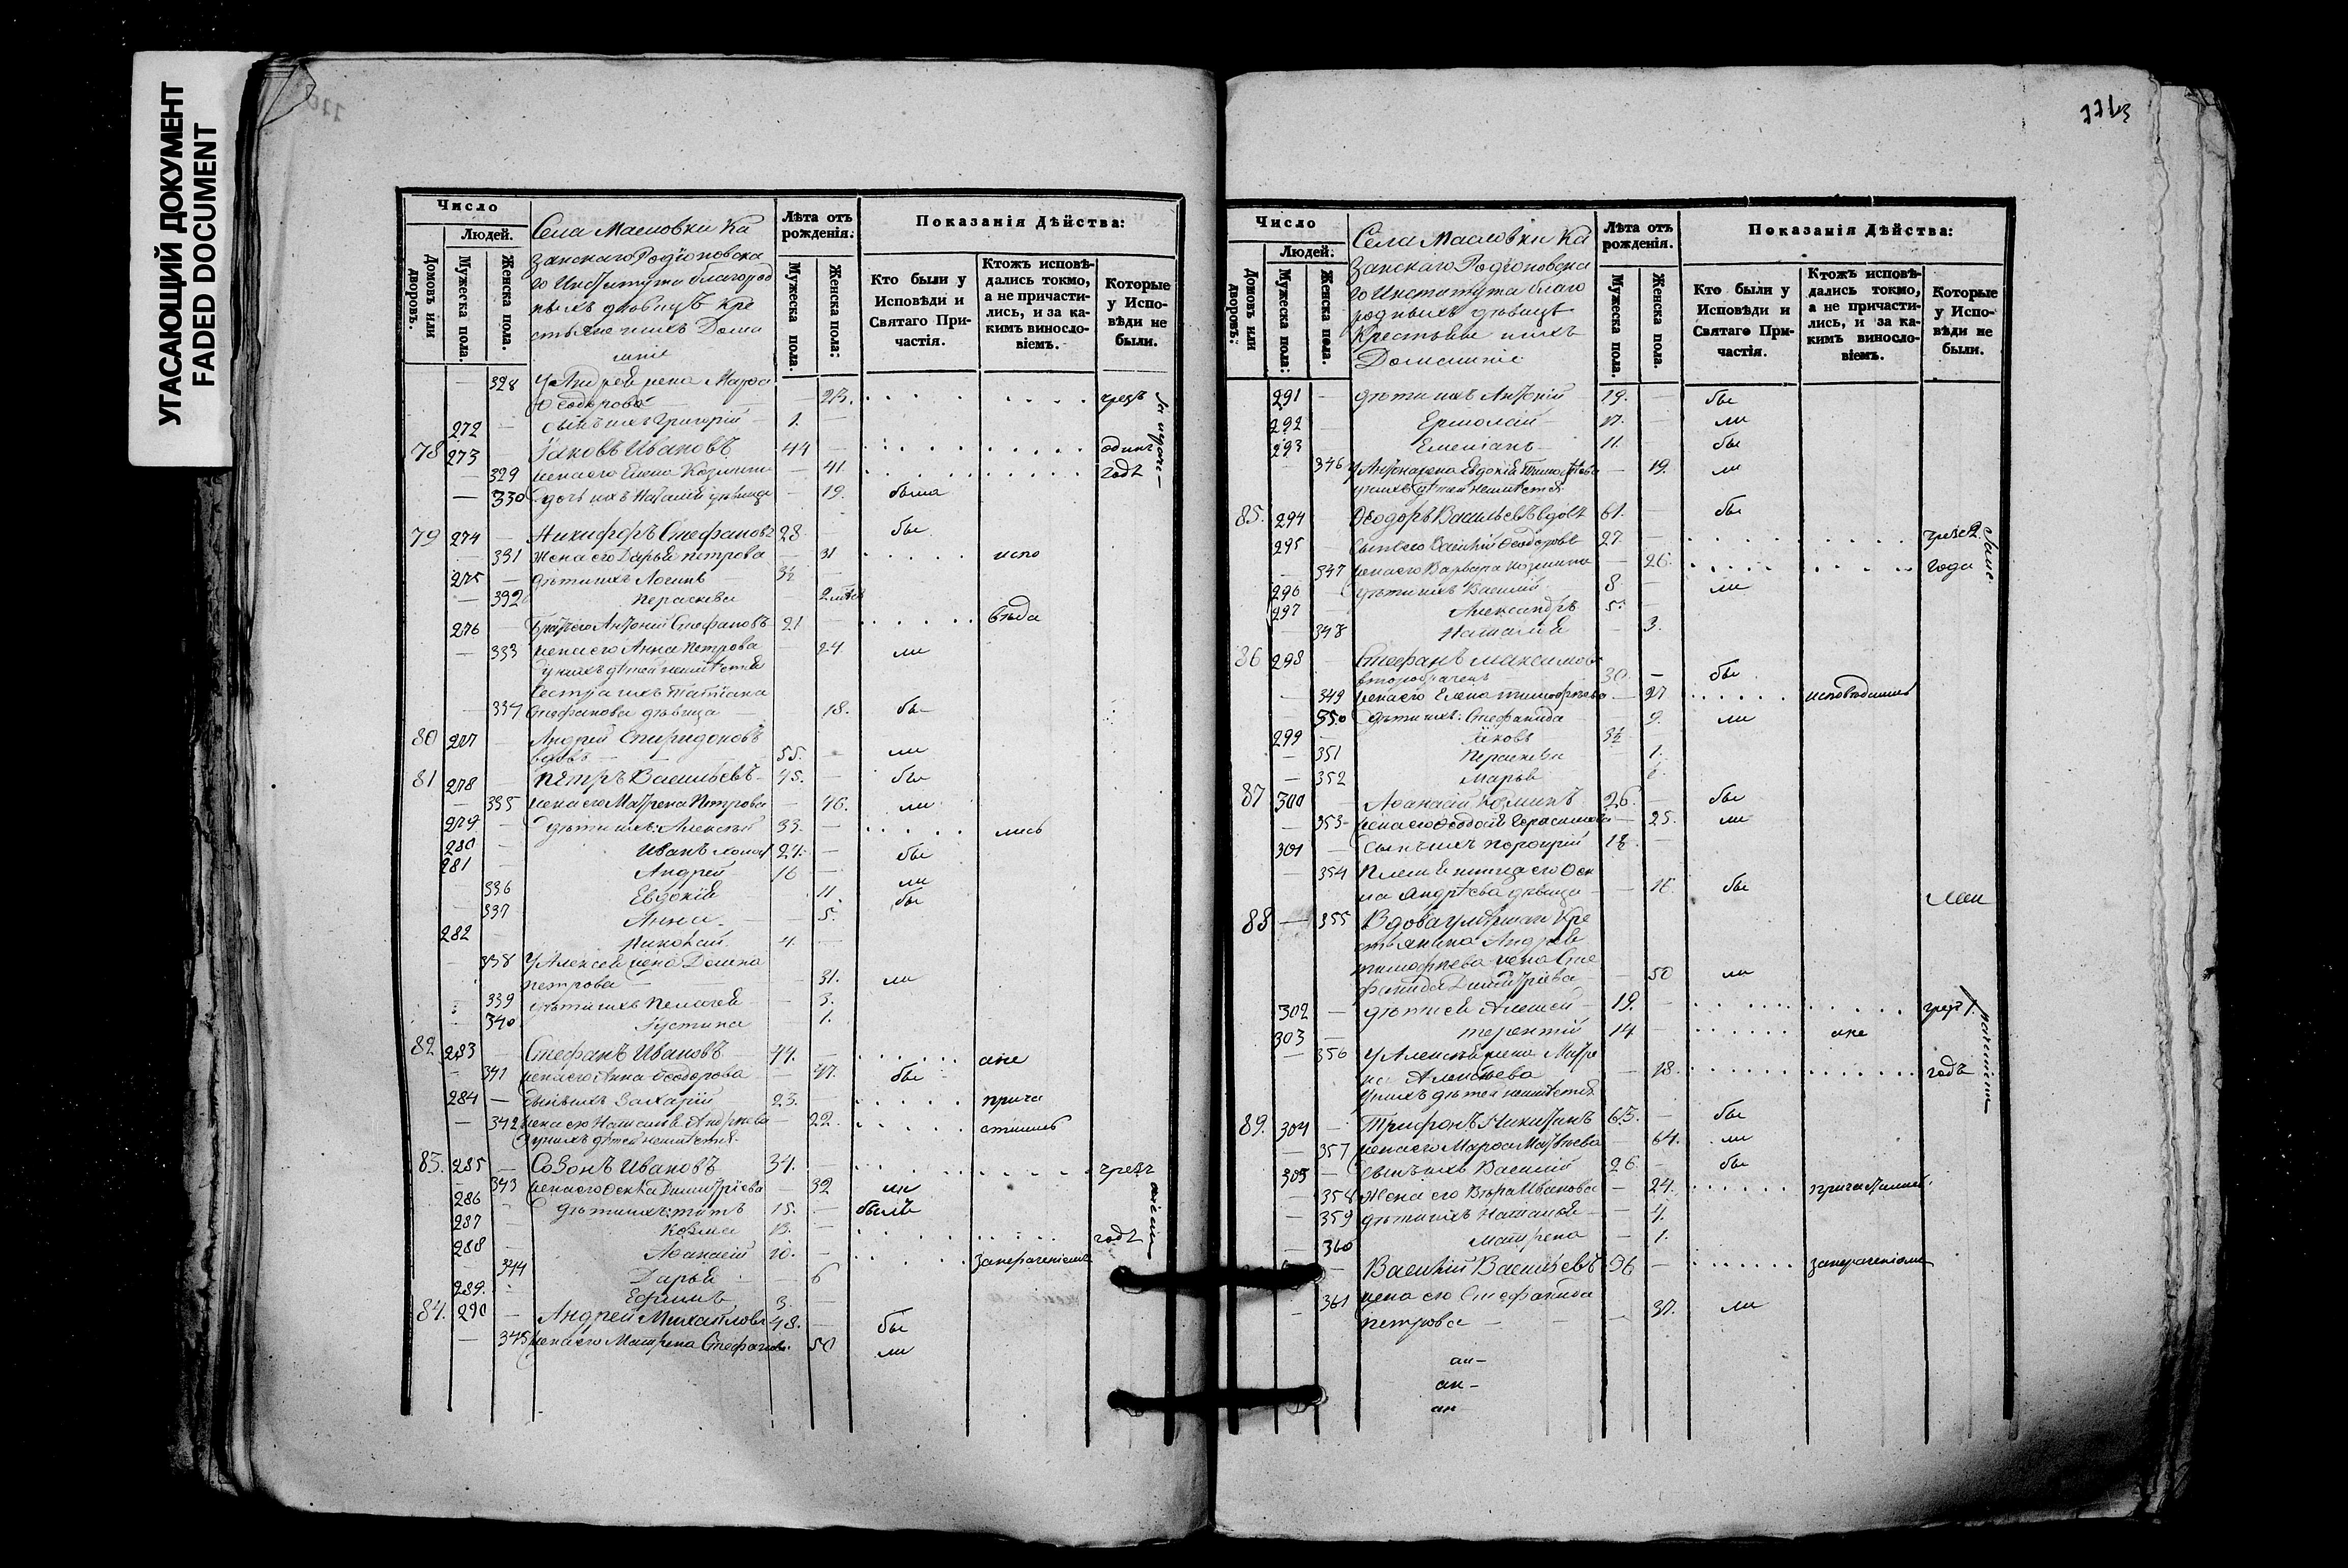 УГАСАЮЩИЙ ДОКУМЕНТ
FADED DOCUMENT
Число
Людей.
Домовъ или дворовъ.
Мужеска пола.
Женска пола.
Села Масловки Ка
занскаго Родіоновска
го Института благород
ныхъ дѣвицъ кре
стьяне и ихъ Дома
шніе
Лѣта отъ рожденія.
Мужеска пола.
Женска пола:
Показанія Дѣйства:
Кто были у Исповѣди и Святаго Причастія.
Ктожъ исповѣдались токмо, а не причастились, и за какимъ винословіемъ.
Которые у Исповѣди не были.
328 У Андрея жена Марѳа
Ѳеодорова 23. чрезъ
272 сынъ ихъ Григорій 1.
78 273 Іаковъ Ивановъ 44 одинъ
329 жена его Елена Козмина 41. годъ
330 дочь ихъ Наталія дѣвица 19. была
79 274 Никифоръ Стефановъ 28 бы
331 Жена его Дарья Петрова 31 испо
275 дѣти ихъ Логинъ 3½
332 Параскева 2
276 Братъ его Антоній Стефановъ 21 вѣда
333 жена его Анна Петрова 24 ли
у нихъ дѣтей неимѣется
Сестра ихъ Татіана
334 Стефанова дѣвица 18. бы
80 277 Андрей Спиридоновъ
вдовъ 55. ли
81 278 Петръ Васильевъ 45. бы
335 жена его Матрена Петрова 46. ли
279 дѣти ихъ: Алексѣй 33. лись
280 Иванъ 24. бы
281 Андрей 16 ли
336 Евдокія 11. бы
337 Анна 5.
282 Николай 4.
338 У Алексея жена Домна
Петрова 31. ли
339 дѣти ихъ Пелагея 3.
340 Іустина 1.
82 283 Стефанъ Ивановъ 44. ане
341 жена его Анна Ѳеодорова 47. бы
284 сынъ ихъ Захарій 23. прича
342 жена его Наталья Андреева 22. стились
у нихъ дѣтей неимѣется.
83. 285 Созонъ Ивановъ 34. чрезъ
343 жена его Ѳекла Димитріева 32 ли
286 дѣти ихъ: Титъ 15. былъ
287 Козма 13. годъ
288 Аѳанасій 10. занераченіемъ
344 Дарья 6
289. Ефимъ 3.
84. 290 Андрей Михайловъ 48. бы
345 жена его Матрена Стефанова 50 ли
Число
Людей.
Домовъ или дворовъ.
Мужеска пола:
Женска пола.
Села Масловки Ка
занскаго Родіоновска
го Института благо
родныхъ дѣвицъ
Крестьяне и ихъ
Домашніе
Лѣта отъ рожденія.
Мужеска пола.
Женска пола.
Показанія Дѣйства:
Кто были у Исповѣди и Святаго Причастія.
Ктожъ исповѣдались токмо, а не причастились, и за какимъ винословіемъ.
Которые у Исповѣди не были.
291 дѣти ихъ Антоній 19. бы
292 Ермолай 17. ли
293 Емеліанъ 11. бы
346 У Антона жена Евдокія Тимофѣева 19. ли
у нихъ дѣтей неимѣется
85. 294 Ѳеодоръ Васильевъ вдовъ 61. бы
295 сынъ его Василій Ѳеодоровъ 27. чрезъ 2
347 жена его Варвара Козмина 26. года
296 дѣти ихъ Василій 8 ли
297 Александръ 5.
348 Наталія 3.
86 298 Стефанъ Максимовъ
второбрачный 30. бы
349 жена его Елена Тимофѣева 27 исповѣдались
350 дѣти ихъ: Стефанида 9. ли
299 Іаковъ 3½
351 Параскева 1.
352 Марья
87 300 Аѳанасій Козминъ 26. бы
353 жена его Ѳеодосія Герасимова 25. ли
301 сынъ ихъ Порфирій
354 Племянница его Ѳек
ла Андреева дѣвица 16. бы
88 355 Вдова умершаго Кре
стьянина Андрея
Тимофѣева жена Сте
фанида Димитріева 50 ли
302 дѣти ея Алексей 19. чрезъ 1.
303 Терентій 14 ане
356 У Алексѣя жена Матре
на Алексѣева 18. годъ
У нихъ дѣтей неимѣется
89. 304 Трифонъ Никитинъ 65. бы
357 жена его Марѳа Матвѣева 64. ли
305 сынъ ихъ Василій 26. бы
358 Жена его Вѣра Иванова 24. причастились
359 дѣти ихъ Наталья 4.
360 Матрена 1.
Василій Васильевъ 36 занераченіемъ
361 жена его Стефанида
Петрова 37. ли